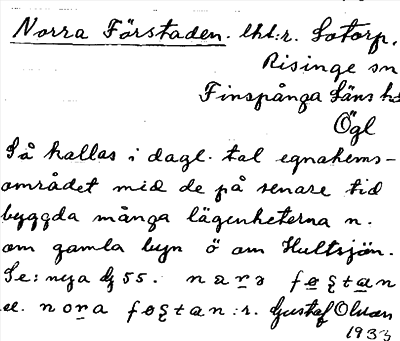 Norra Förstaden. lht:r. Sotorp,
Risinge sn
Finspånga Läns hd
Ögl
Så kallas i dagl. tal egnahems-
området med de på senare tid
byggda många lägenheterna n.
om gamla byn ö om Hultsjön.
Se: nya 55.
Gustaf Olsson
1933